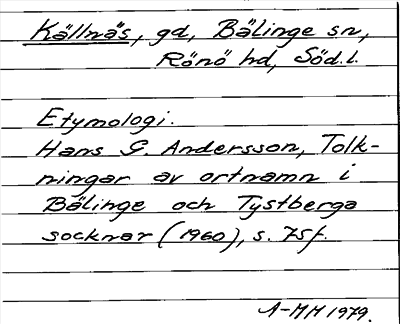 Källnäs, gd, Bälinge sn,
Rönö hd, Söd.l.
Etymologi.
Hans G. Andersson, Tolk-
ningar av ortnamn i
Bälinge och Tystberga
socknar (1960), s. 75f.
A-MM 1979.